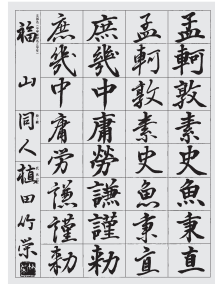 孟軻敦素史魚秉直
孟軻敦素史魚秉直
庶幾中庸勞謙謹勅
庶幾中庸労謙謹勅
福山 同人 植田竹栄